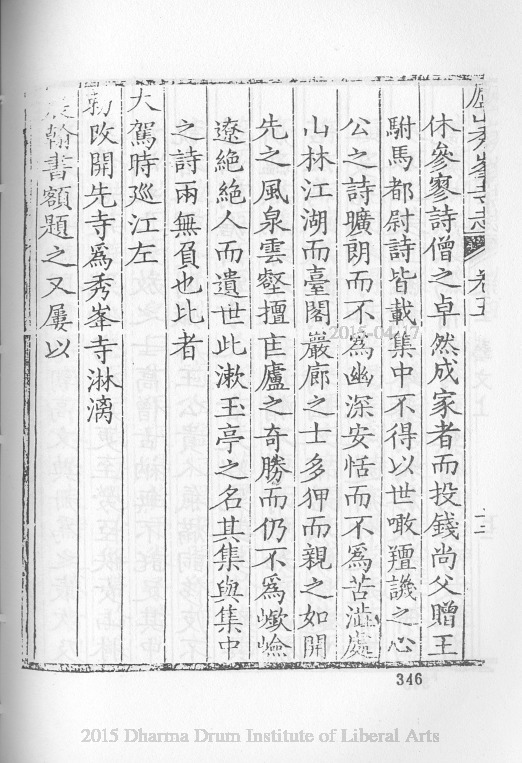 廬山秀峯寺志 卷五
休參寥詩僧之卓然成家者而投錢尚父贈王
駙馬都尉詩皆載集中不得以世噉羶譏之心
公之詩曠朗而不為幽深安恬而不為苦澁處
山林江湖而臺閣巖廊之士多狎而親之如開
先之風泉雲壑擅匡廬之奇勝而仍不為巇嶮
遼絕絕人而遺世此漱玉亭之名其集與集中
之詩兩無負也比者
大駕時巡江左
勅改開先寺為秀峯寺淋漓
宸翰書額題之又屢以
2015-04-17
346
2015 Dharma Drum Institute of Liberal Arts